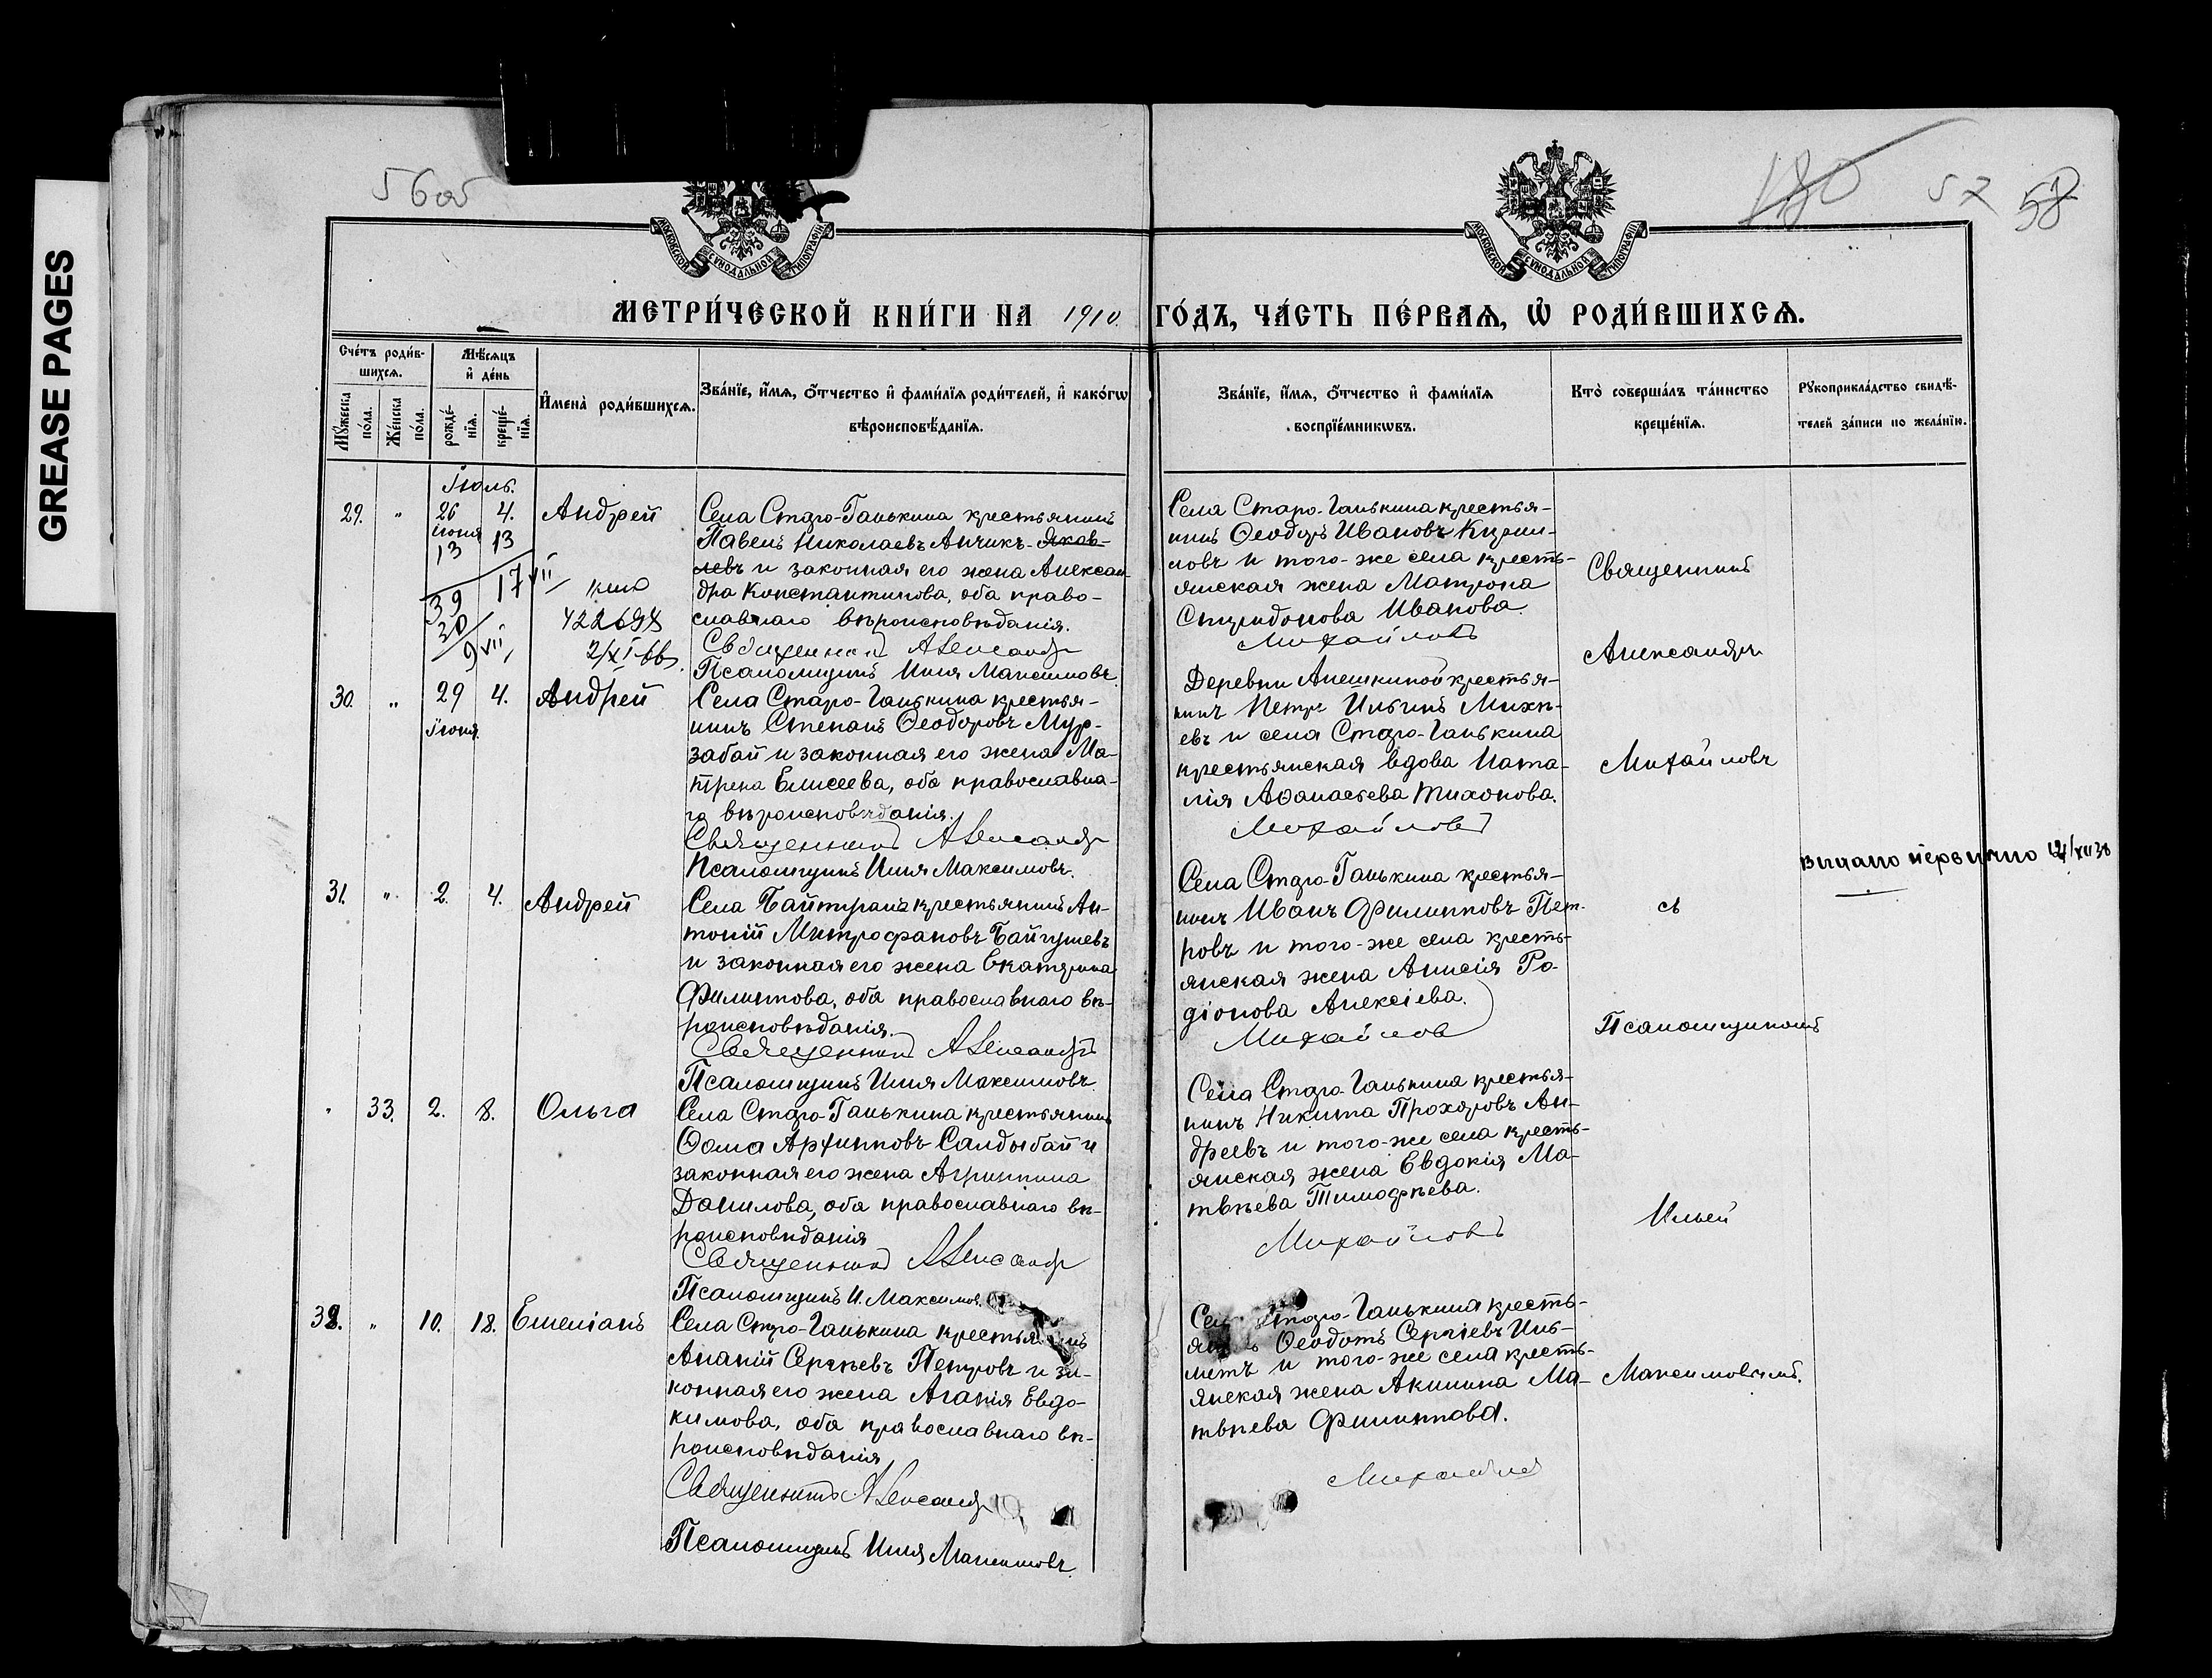 GREASE PAGES
56об
180 57 58
МОСКОВСКОЙ СѴНОДАЛЬНОЙ ТИПОГРАФІИ
МОСКОВСКОЙ СѴНОДАЛЬНОЙ ТИПОГРАФІИ
МЕТРИ́ЧЕСКОЙ КНИ́ГИ НА 1910 ГО́ДЪ, ЧА́СТЬ ПЕ́РВАѦ, Ѡ҆ РОДИ́ВШИХСѦ.
Сче́тъ роди́в-
шихсѧ.
Мꙋ́жеска
по́ла.
Же́нска
по́ла.
Мѣ́сѧцъ
и҆ де́нь
рожде́-
нїѧ.
креще́-
нїѧ.
И҆мена̀ роди́вшихсѧ.
Зва́нїе, и҆́мѧ, ѻ҆́тчество и҆ фами́лїѧ роди́телей, и҆ како́гѡ
вѣроисповѣ́данїѧ.
Зва́нїе, и҆́мѧ, ѻ҆́тчество и҆ фами́лїѧ
воспрїе́мникѡвъ.
Кто̀ соверша́лъ та́инство
креще́нїѧ.
Рꙋкоприкла́дство свидѣ́-
телей за́писи по жела́нїю.
Іюль.
29. " 26 4. Андрей
іюня
13 13
39 17 VII
30
9 VII
422698
2/XI-66
Села Старо-Ганькина крестьянинъ
Павелъ Николаевъ Анчикъ-Яков-
левъ и законная его жена Алексан-
дра Константинова, оба право-
славнаго вѣроисповѣданія.
Священникъ Александръ
Псаломщикъ Илія Максимовъ.
Села Старо-Ганькина крестья-
нинъ Ѳеодоръ Ивановъ Кирил-
ловъ и того-же села кресть-
янская жена Матрона
Спиридонова Иванова.
Михайловъ
Священникъ
Александръ
Михайловъ
съ
Псаломщикомъ
Ильей
Максимовымъ.
30. " 29 4. Андрей
іюня.
Села Старо-Ганькина крестья-
нинъ Степанъ Ѳеодоровъ Мур-
забай и законная его жена Ма-
трена Елисеева, оба православна-
го вѣроисповѣданія.
Священникъ Александръ
Псаломщикъ Илія Максимовъ.
Деревни Алешкиной крестья-
нинъ Петръ Ильинъ Михе-
евъ и села Старо-Ганькина
крестьянская вдова Ната-
лія Аѳанасьева Тихонова.
Михайловъ
31. " 2. 4. Андрей
Села Байтугана крестьянинъ Ан-
тоній Митрофановъ Байгушевъ
и законная его жена Екатерина
Филиппова, оба православнаго вѣ-
роисповѣданія.
Священникъ Александръ
Псаломщикъ Илія Максимовъ.
Села Старо-Ганькина крестья-
нинъ Иванъ Филипповъ Пет-
ровъ и того-же села кресть-
янская жена Анисія Ро-
діонова Алексіева.
Михайловъ
Выдано первично 12/XII 38
" 33. 2. 8. Ольга
Села Старо-Ганькина крестьянинъ
Ѳома Архипповъ Салдыбай и
законная его жена Агриппина
Данилова, оба православнаго вѣ-
роисповѣданія
Священникъ Александръ
Псаломщикъ И. Максимов.
Села Старо-Ганькина крестья-
нинъ Никита Прохоровъ Ан-
дреевъ и того-же села кресть-
янская жена Евдокія Ма-
твѣева Тимофѣева.
Михайловъ
32. " 10. 18. Емеліанъ
Села Старо-Ганькина крестьянинъ
Ананій Сергѣевъ Петровъ и за-
конная его жена Агапія Евдо-
кимова, оба православнаго вѣ-
роисповѣданія
Священникъ Александръ
Псаломщикъ Илія Максимовъ.
Села Старо-Ганькина кресть-
янинъ Ѳеодотъ Сергіевъ Иль-
метъ и того-же села кресть-
янская жена Акилина Ма-
твѣева Филиппова.
Михайлов